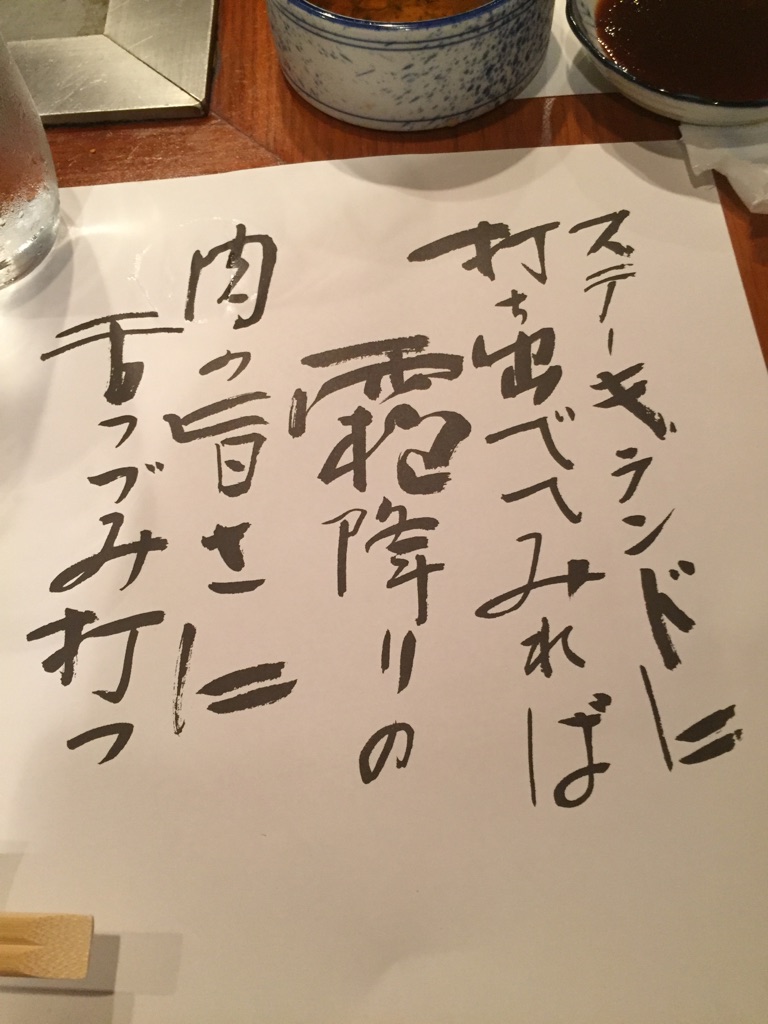 ステーキランドに
打ち出べてみれば
霜降りの
肉の旨さに
舌つづみ打つ